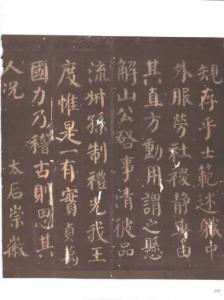 規存乎士範述軄中
外服勞社稷静專由
其直方動用謂之懸
解山公啓事清彼品
流叔孫制禮光我王
度惟是一有實貞萬
國力乃稽古則思其
人況 太后崇徽